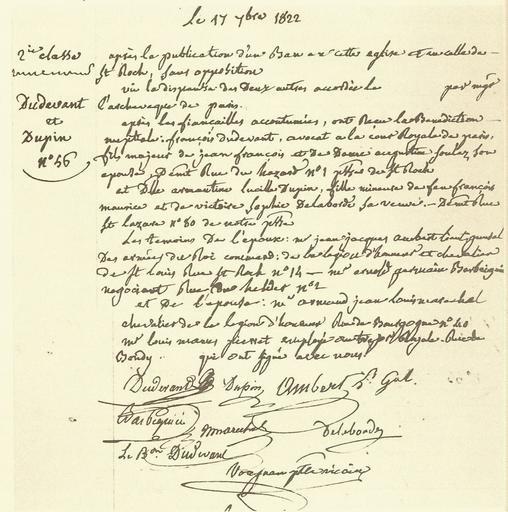 le 17 7bre 1822
2me classe
Dudevant
et
Dupin
n° 56
après la publication d'un Ban en cette eglise et en celle de
St Roch, sans opposition
vu la dispense des Deux autres accordée le par mgr
l'archeveque de paris.
après les fiancailles accoutumées, ont Recu la Benediction
nuptiale: françois dudevant, avocat a la cour Royale de paris,
fils majeur de jean françois et De Dame augustine soulez son
epouse, Dmt Rue du hazard n° 1 psse de St Roch
et Dlle armantine lucille Dupin, fille mineure de feu françois
maurice et de victoire Sophie Delaborde sa veuve. Dmt Rue
St lazare n° 80 de notre psse
Les temoins De l'epoux: mr jean jacques ambert lieut. general
Des armées du Roi command. de la legion d'honneur et chevalier
de St louis Rue St Roch n° 14 — mr arnold germain Barbeguière
negociant Rue helder n° 2
et De l'epouse: mr armand jean louis marechal
chevalier de la legion d'honneur Rue de Bourgogne n° 40
mr louis mammes pierret employé au Royale. Rue de
Bondy. qui ont signé avec nous
Dudevant Dupin Ambert Lt Gal.
Barbeguiere
marechal Delaborde
Le Bon Dudevant